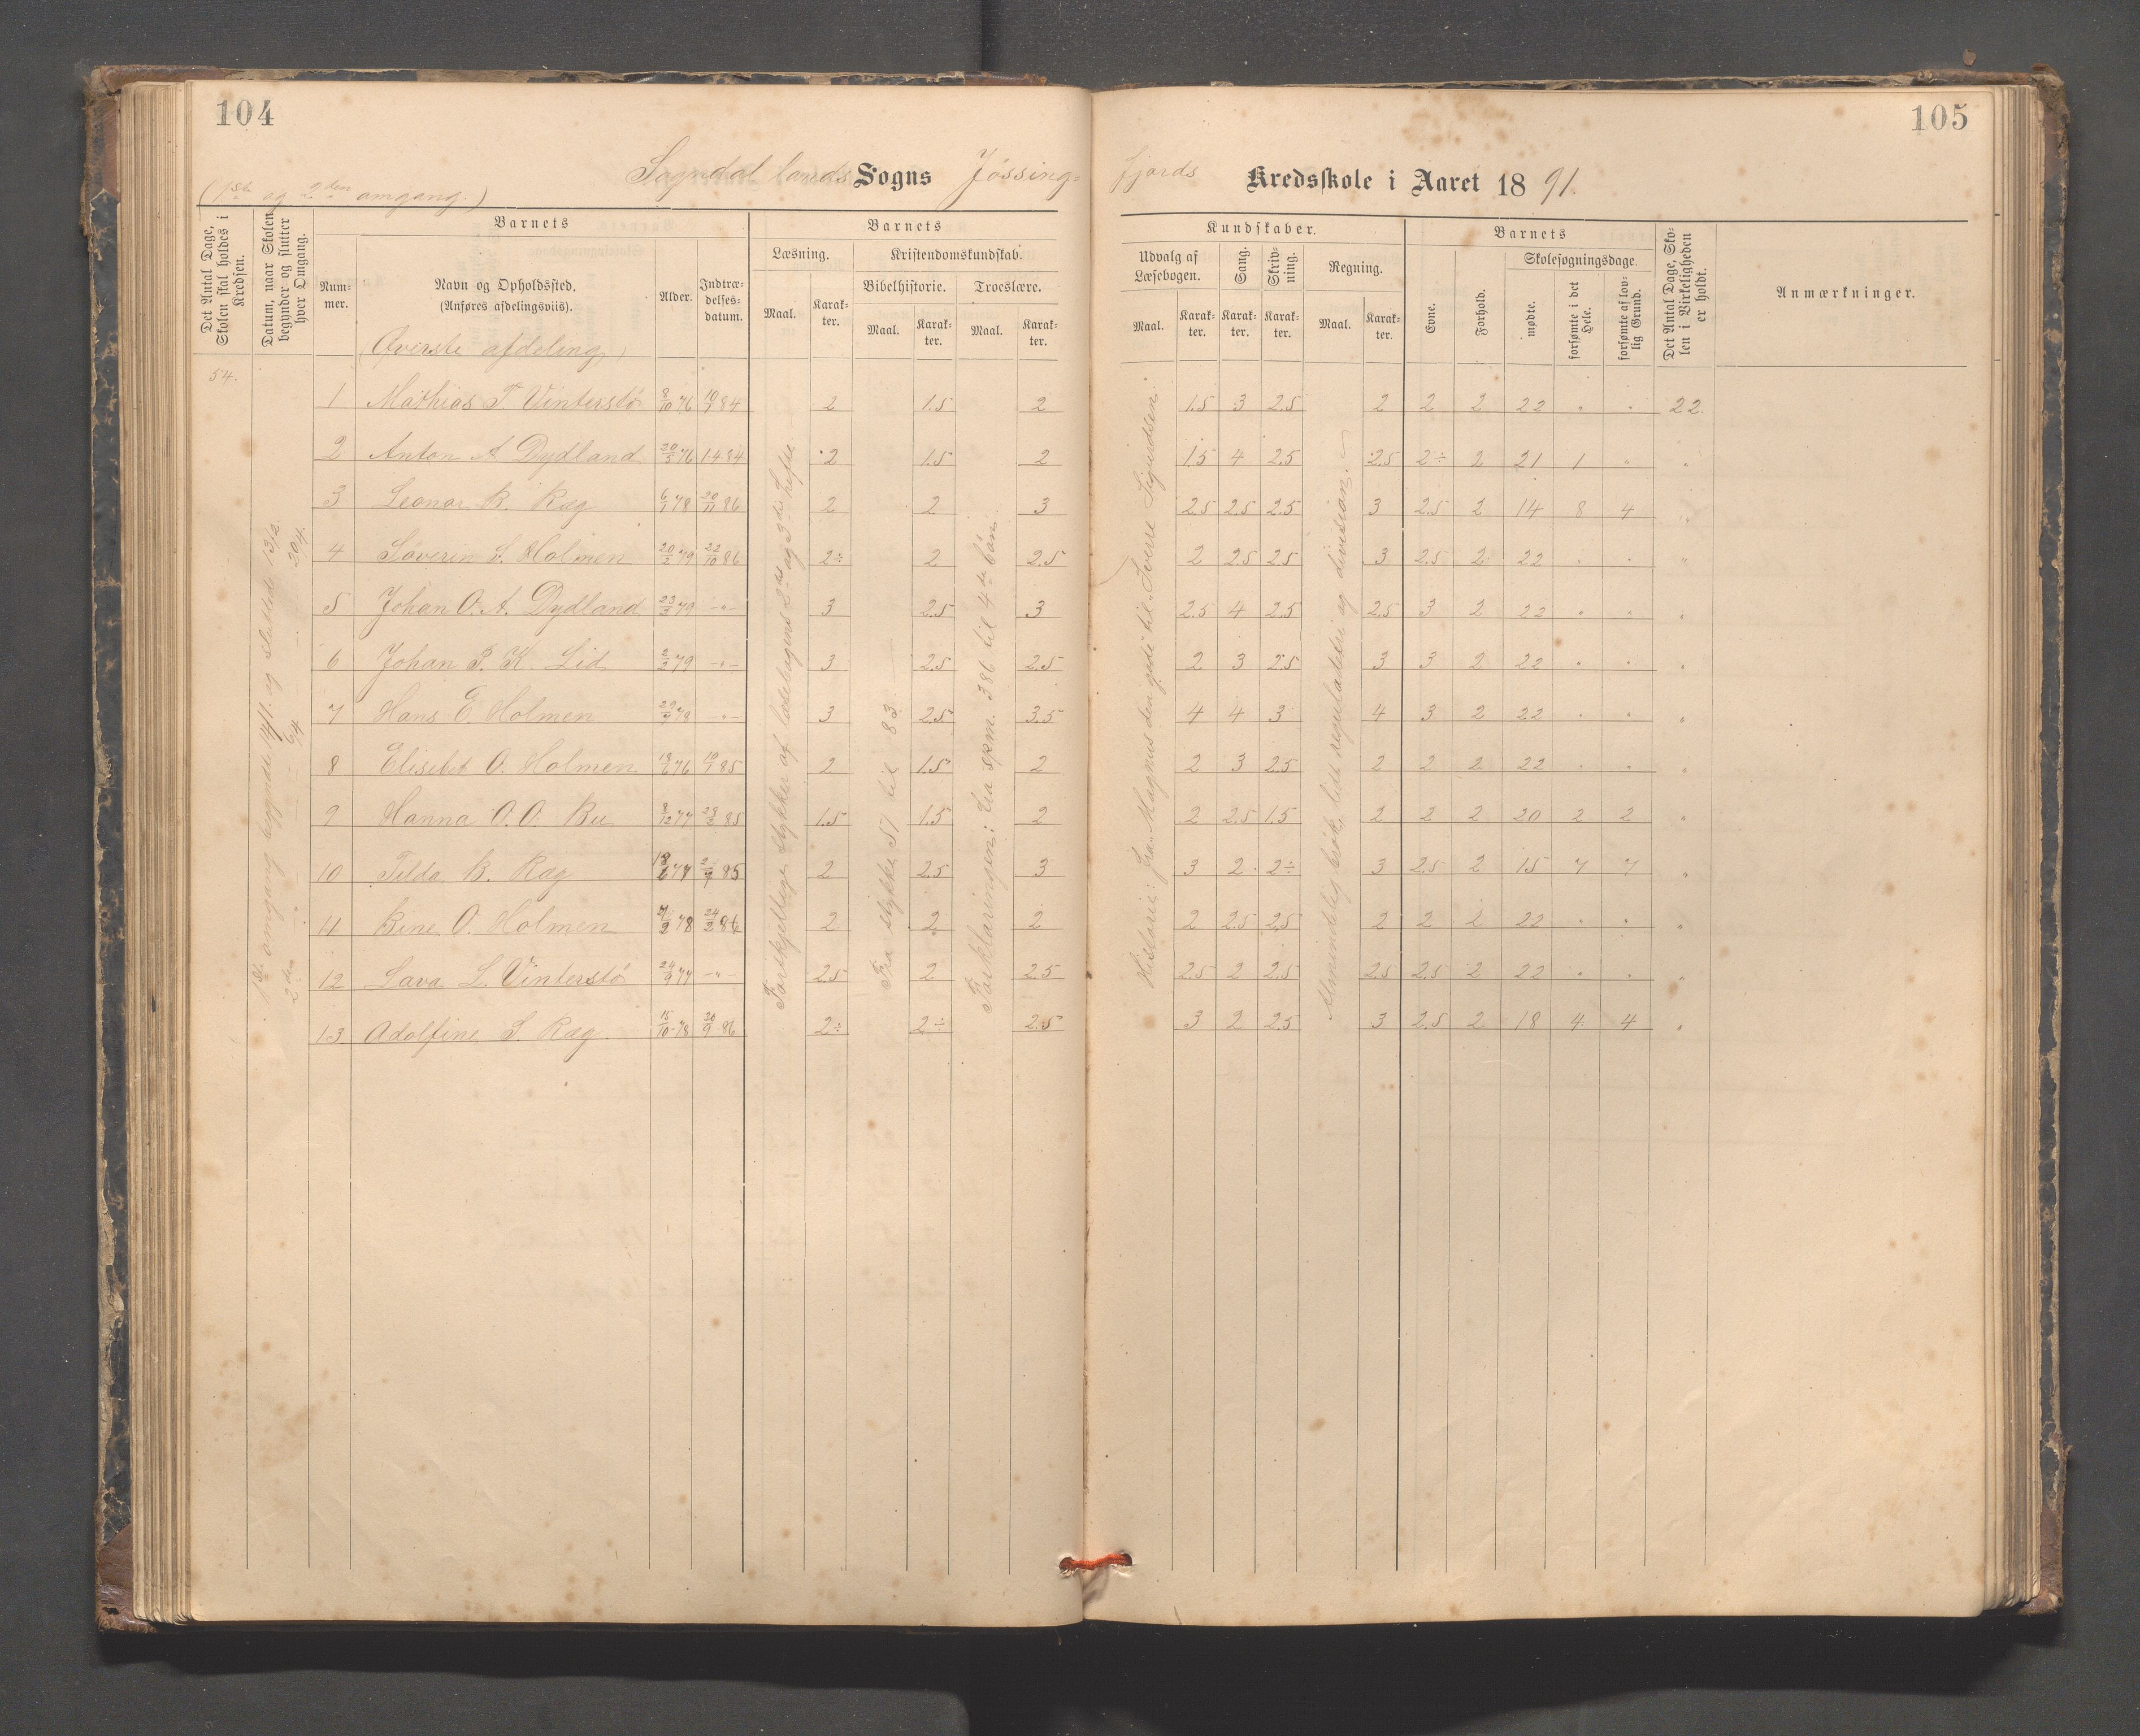 104
105
Sogndal lands Sogns Jössing-
fjords Kredsskole i Aaret 1891.
(1ste og 2den omgang.)
Det Antal Dage, Skolen skal holdes i Kredsen.
Datum, naar Skolen begynder og slutter hver Omgang.
Barnets
Nummer.
Navn og Opholdssted.
(Anføres afdelingsviis).
Alder.
Indtrædelsesdatum.
Barnets
Læsning.
Maal.
Karakter.
Kristendomskundskab.
Bibelhistorie.
Maal.
Karakter.
Troeslære.
Maal.
Karakter.
Kundskaber.
Udvalg af Læsebogen.
Maal.
Karakter.
Sang.
Karakter.
Skrivning.
Karakter.
Regning.
Maal.
Karakter.
Barnets
Evne.
Forhold.
Skolesøgningsdage.
mødte.
forsømte i det Hele.
forsømte af lovlig Grund.
Det Antal Dage, Skolen i Virkeligheden er holdt.
Anmærkninger.
(Øverste afdeling)
54.
1ste omgang begyndte 14/1. og sluttede 13/2.
2den 6/4 20/4.
Forskjellige stykker af læsebogens 2det og 3die hefte.
Fra stykke 51 til 83.
Forklaringen: fra spm. 386 til 4de bön.
Historie: fra Magnus den gode til Sverre Sigurdsen
Almindelig brök, lidt reguladetri og division.
1 Mathias T. Vinterstö 8/10 76 10/7 84 2 1.5 2 1.5 3 2.5 2 2 2 22 " " 22.
2 Anton A. Dydland 20/5 76 14 84 2 1.5 2 1.5 4 2.5 2.5 2÷ 2 21 1 " "
3 Leonar B. Ræg 6/1 78 20/11 86 2 2 3 2.5 2.5 2.5 3 2.5 2 14 8 4 "
4 Söveren L. Holmen 20/2 79 22/10 86 2÷ 2 2.5 2 2.5 2.5 3 2.5 2 22 " " "
5 Johan O. A. Dydland 23/3 79 -"- 3 2.5 3 2.5 4 2.5 2.5 3 2 22 " " "
6 Johan P. K. Lid 2/2 79 -"- 3 2.5 2.5 2 3 2.5 3 3 2 22 " " "
7 Hans E. Holmen 29/7 78 -"- 3 2.5 3.5 4 4 3 4 3 2 22 " " "
8 Elisebet O. Holmen 18/6 76 10/7 85 2 1.5 2 2 3 2.5 2 2 2 22 " " "
9 Hanna O. O. Bu 8/12 77 28/2 85 1.5 1.5 2 2 2.5 1.5 2 2 2 20 2 2 "
10 Tilda B. Ræg 18/6 77 2/9 85 2 2.5 3 3 2 2÷ 3 2.5 2 15 7 7 "
11 Bine O. Holmen 7/2 78 24/2 86 2 2 2 2 2.5 2.5 2 2 2 22 " " "
12 Lava L. Vinterstö 24/9 77 -"- 2.5 2 2.5 2.5 2 2.5 2.5 2.5 2 22 " " "
13 Adolfine S. Ræg 15/10 78 30/9 86 2÷ 2÷ 2.5 3 2 2.5 3 2.5 2 18 4 4 "